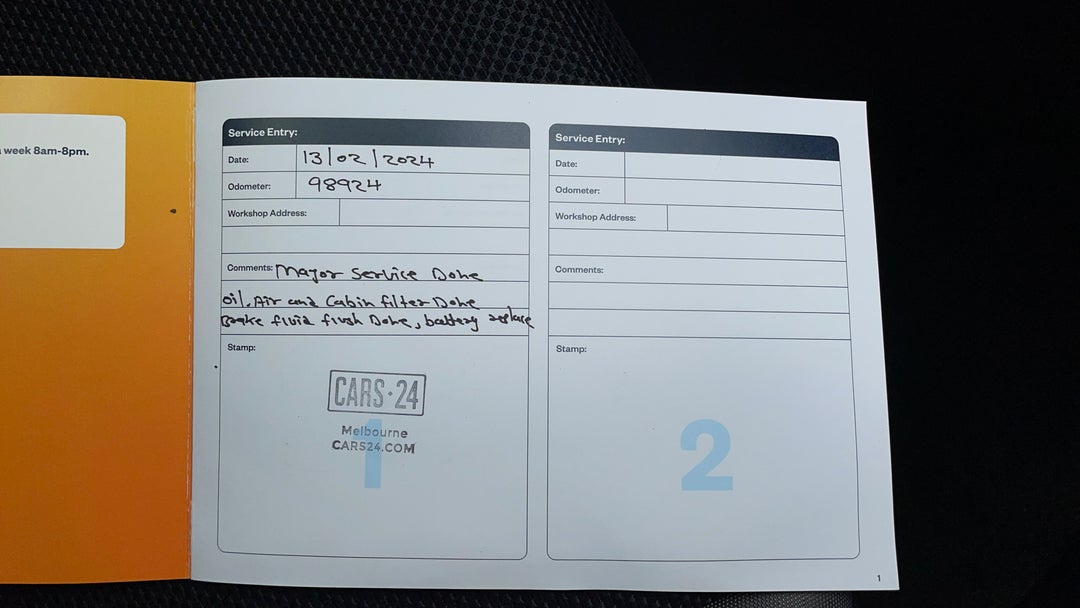 week 8am-8pm.
Service Entry:
Date: 13/02/2024
Odometer: 98924
Workshop Address:
Comments: Major Service Done
oil, Air and Cabin filter Done
Brake fluid flush Done, battery replace
Stamp:
CARS·24
Melbourne
CARS24.COM
1
Service Entry:
Date:
Odometer:
Workshop Address:
Comments:
Stamp:
2
1